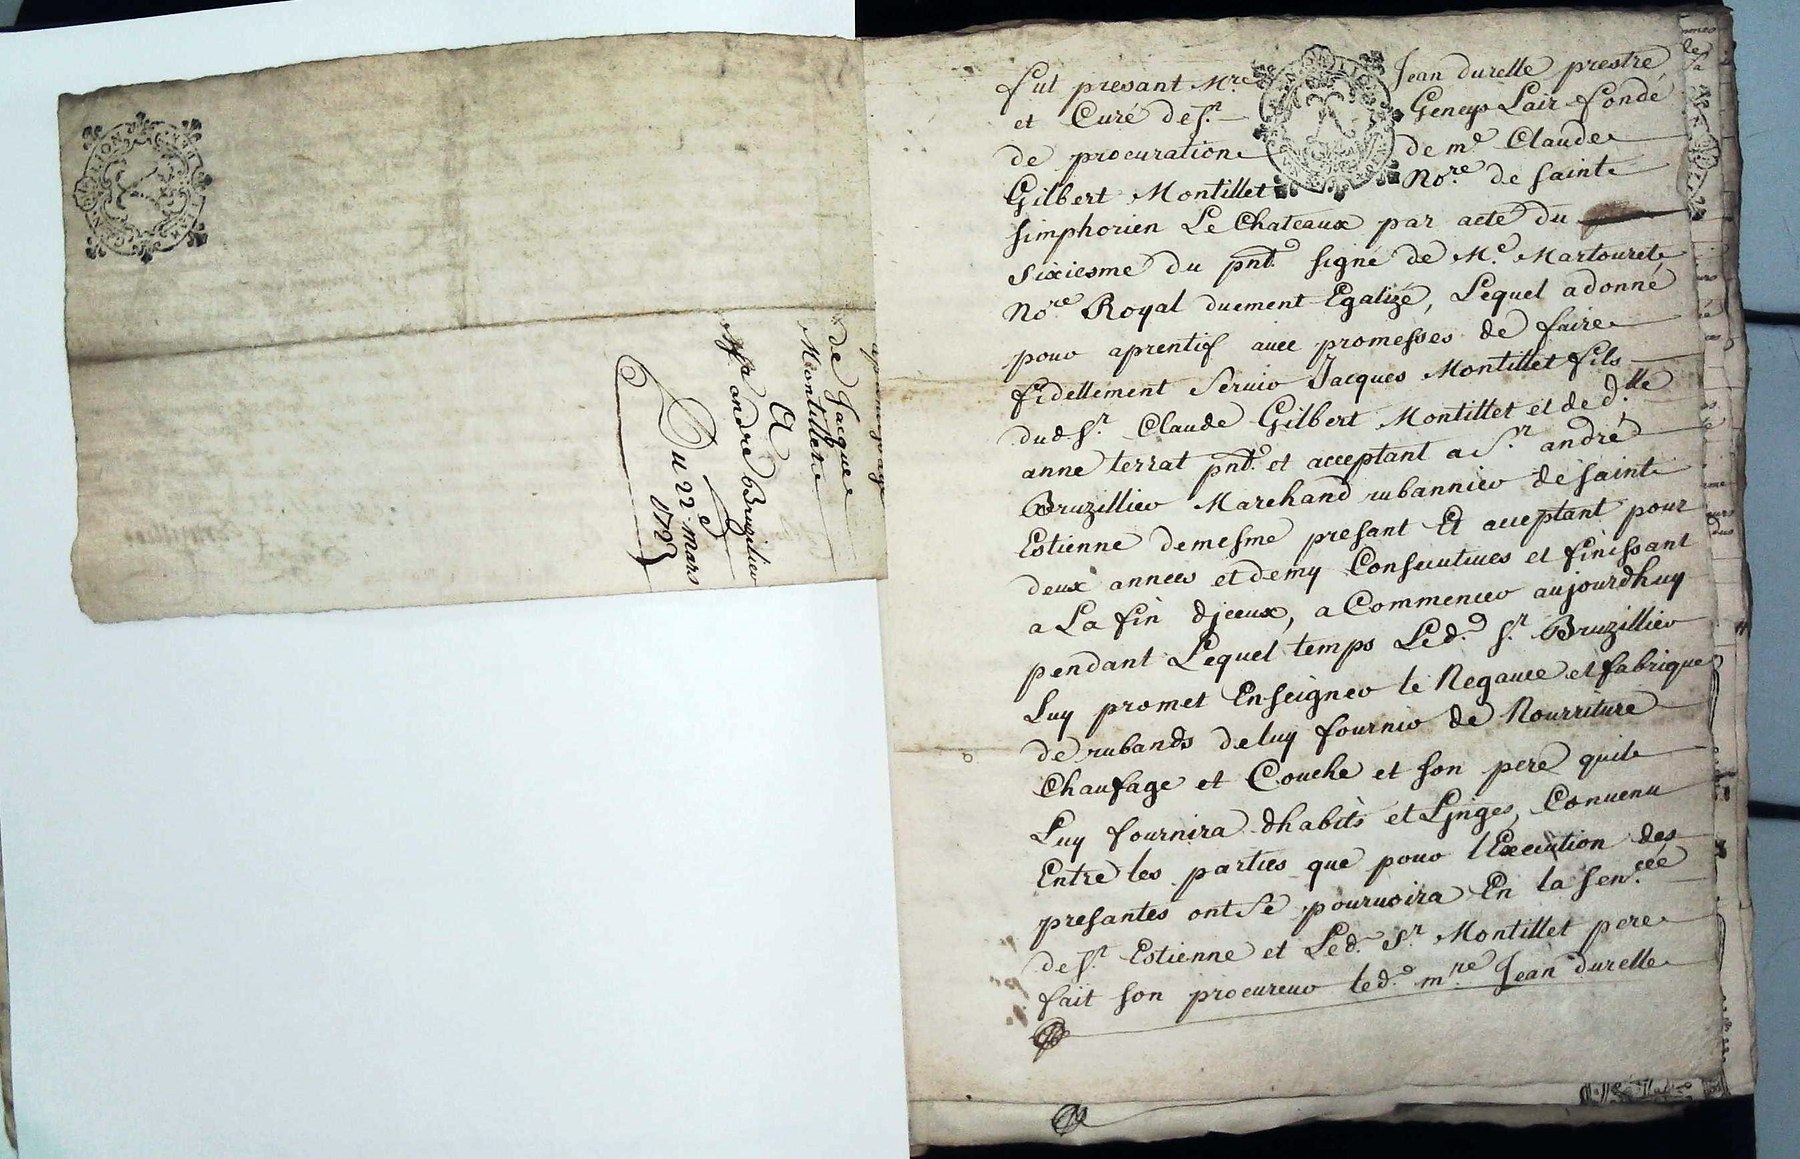 aprentissage
de Jacque
Montillet
A
Sr andré Bruzilier
Du 22 mars
1728
fut presant Mre Jean durelle prestre
et Curé de St Geneys Lair fondé
de procuration de me Claude
Gilbert Montillet Nore de saint
simphorien Le Chateaux par acte du
sixiesme du pnt signé de Me Martouret
Nore Royal duement Egalizé, Lequel a donné
pour aprentif avec promesses de faire
fidellement servir Jacques Montillet fils
dud sr Claude Gilbert Montillet et de dlle
anne terrat pnt et acceptant a sr andré
Bruzillier Marchand rubannier de saint
Estienne demesme presant Et acceptant pour
deux années et demy Consecutives et finissant
a La fin djceux, a Commencer aujourdhuy
pendant Lequel temps Led. sr Bruzillier
Luy promet Enseigner le Negauce et fabrique
de rubands de luy fournir de Nourriture
Chaufage et Couche et son pere quil
Luy fournira dhabits et Ljnges, Convenu
Entre les parties que pour l'Execution des
presantes ont se pourvoira En la senceé
de st Estienne et Led. sr Montillet pere
fait son procureur led. mre Jean durelle